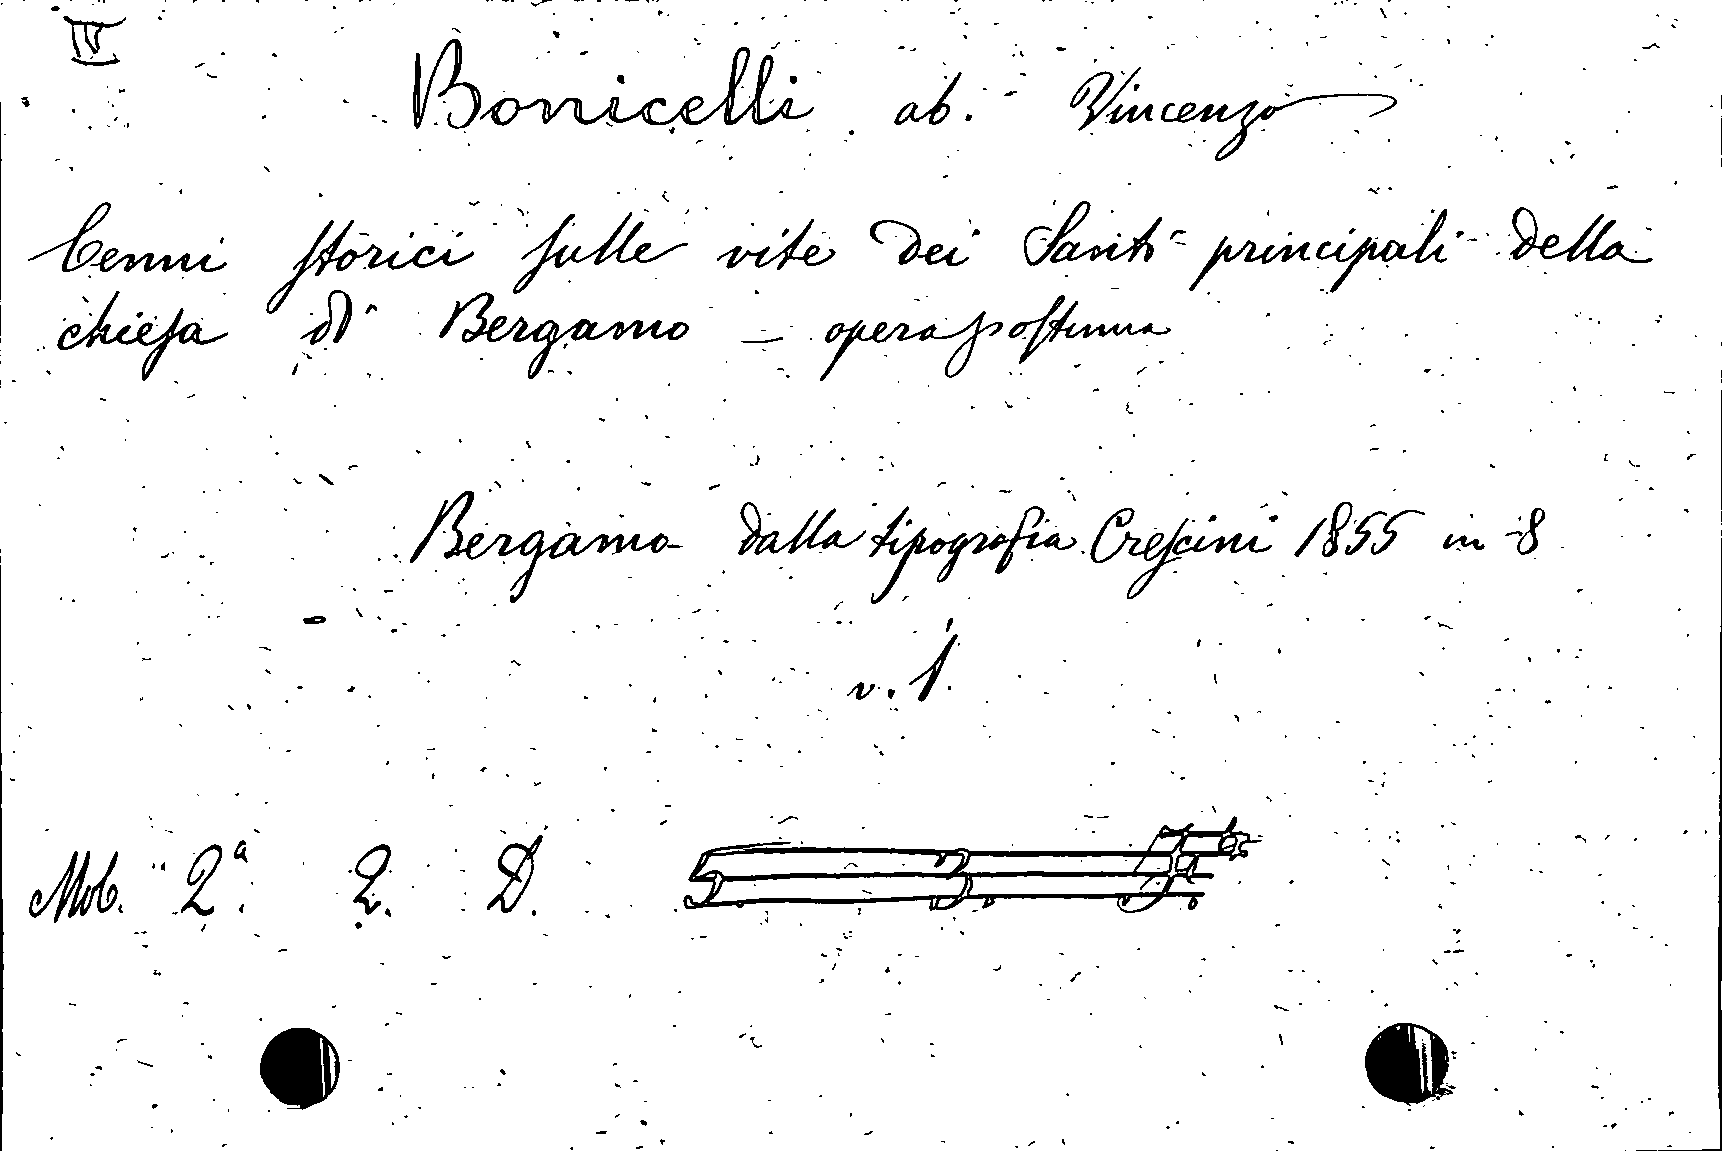 IV
Bonicelli ab. Vincenzo
Cenni storici sulle vite dei Santi principali della
chiesa di Bergamo – opera postuma
Bergamo dalla tipografia Crescini 1855 in 8
v. 1.
Mob. 2ª. 2. D.